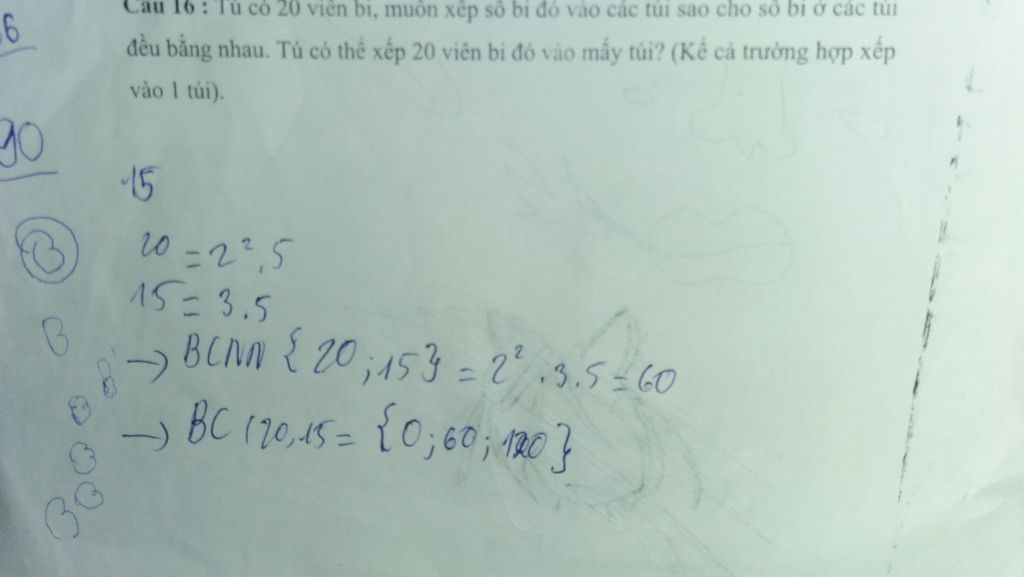 Câu 16 : Tú có 20 viên bi, muốn xếp số bi đó vào các túi sao cho số bi ở các túi
đều bằng nhau. Tú có thể xếp 20 viên bi đó vào mấy túi? (Kể cả trường hợp xếp
vào 1 túi).
6
90
15
20 = 2². 5
15 = 3.5
B
→ BCNN { 20 ; 15 } = 2² . 3.5 = 60
→ BC (20,15 = {0; 60; 120}